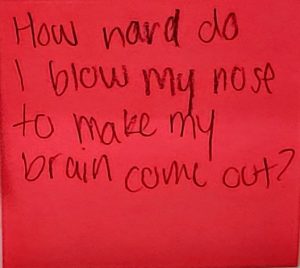 How hard do
I blow my nose
to make my
brain come out?